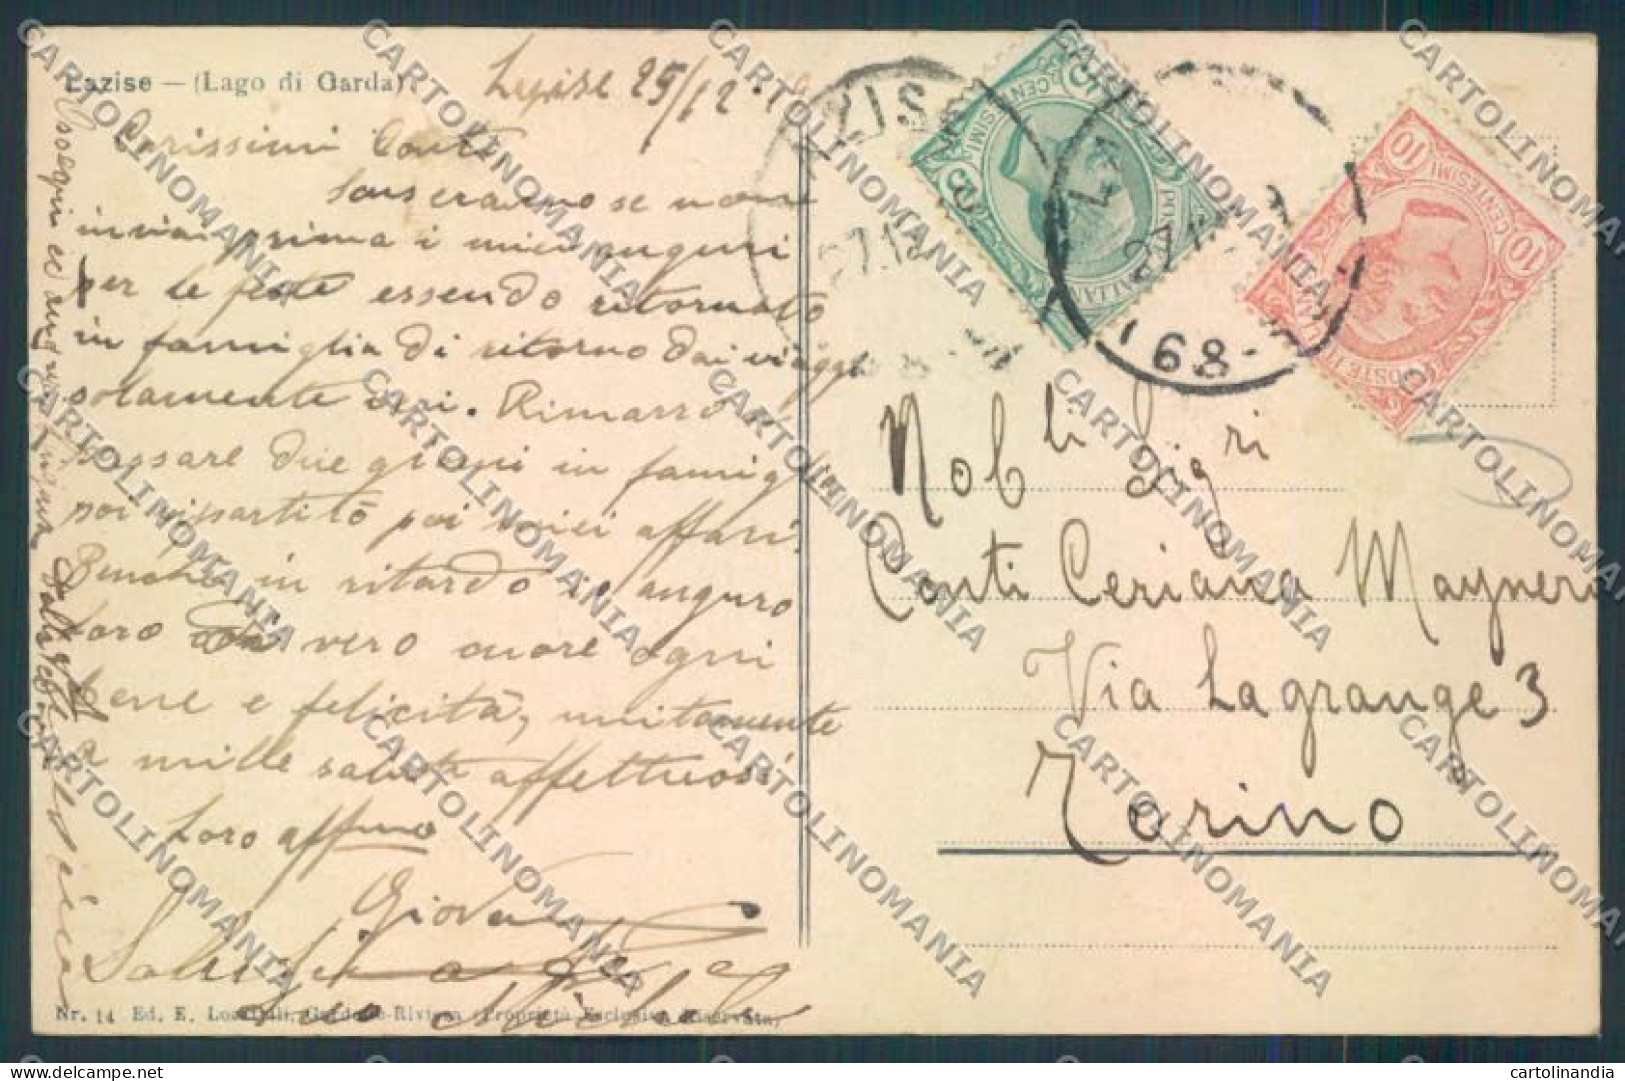 Lazise — (Lago di Garda).
Lazise 25/12
Carissimi Conti
Scuseranno se non
inviai prima i miei auguri
per le feste essendo ritornato
in famiglia di ritorno dai viaggi
solamente ieri. Rimarrò a
passare due giorni in famiglia
poi ripartirò poi miei affari.
Benchè in ritardo io auguro
Loro di vero cuore ogni
bene e felicità, unitamente
a mille saluti affettuosi
Loro affmo
Giovanni
Nr. 14 Ed. E. Garda-Riviera (Proprietà Esclusiva Riservata)
5
CENTESIMI
POSTE ITALIANE
10
CENTESIMI
10
POSTE ITALIANE
27
68
Nobli Sigri
Conti Ceriana Mayneri
Via Lagrange 3
Torino
CARTOLINOMANIA
cartolinandia